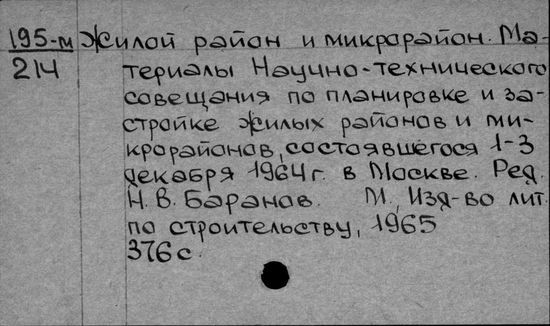 195-м Жилой район и микрорайон. Ма-
214 териалы Научно-технического
совещания по планировке и за-
стройке жилых районов и ми-
крорайонов, состоявшегося 1-3
декабря 1964 г. в Москве. Ред.
Н. В. Баранов. М., Изд-во лит.
по строительству, 1965
376 с.